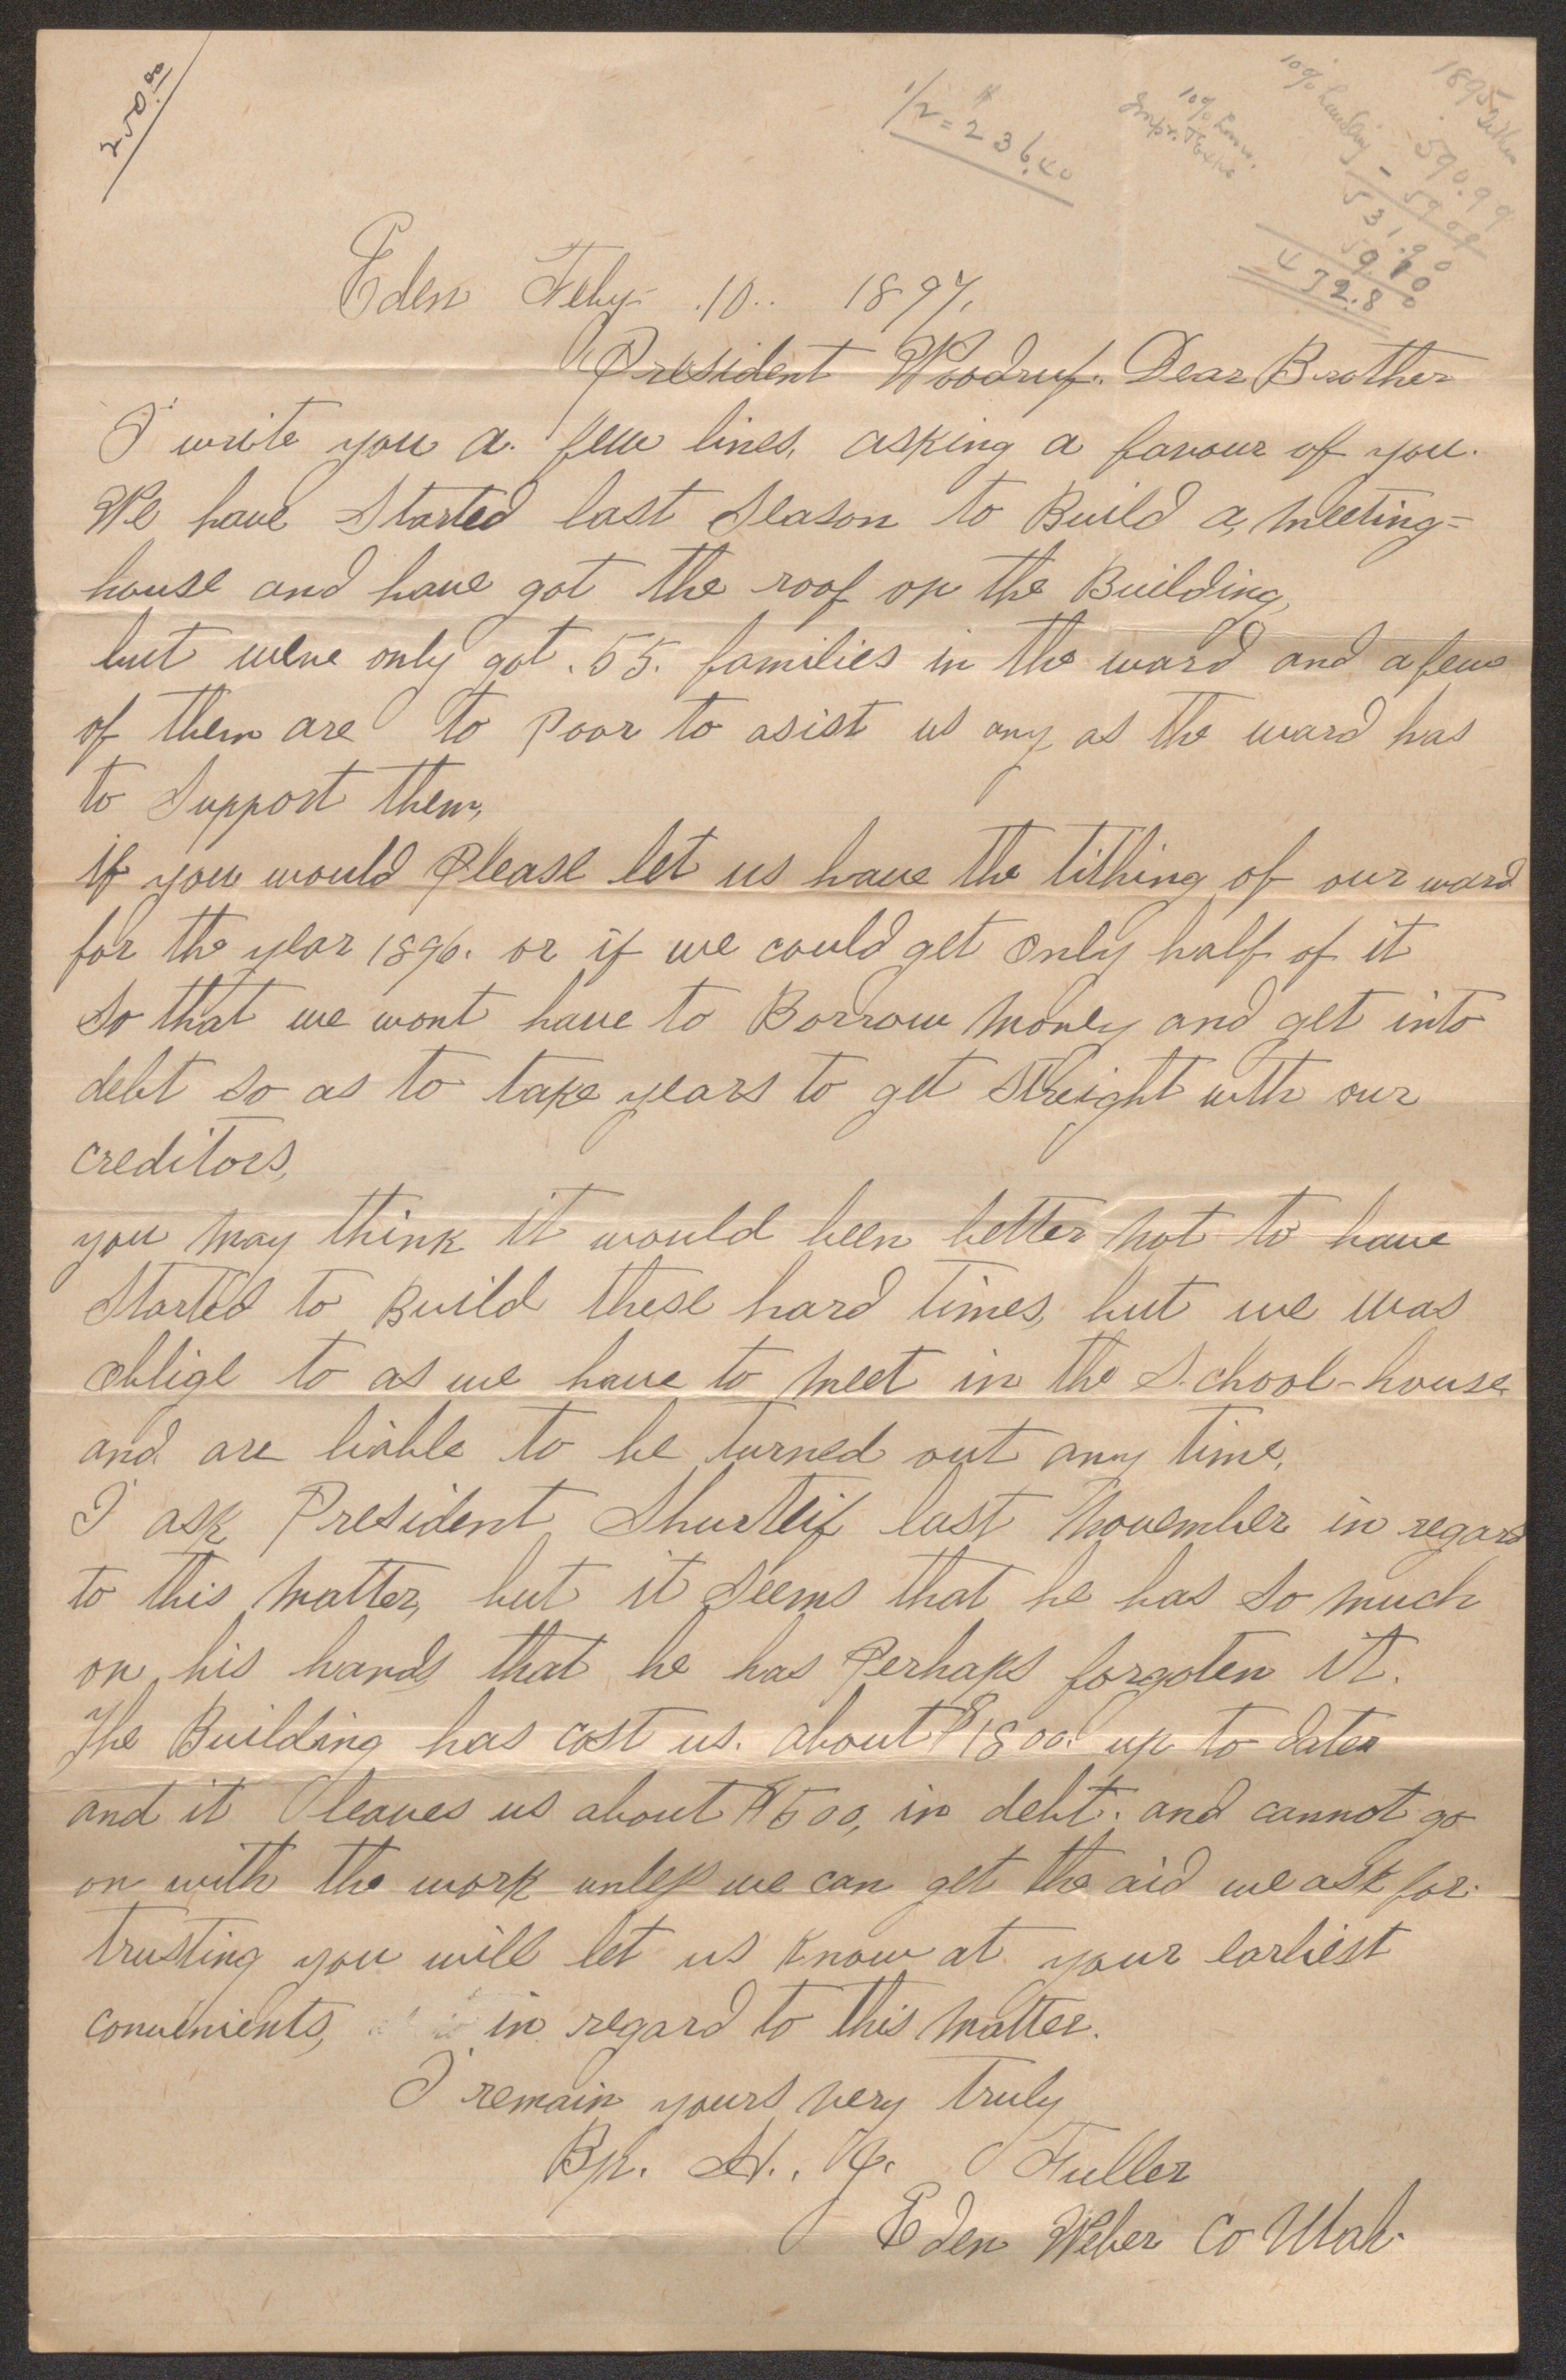 250.00
1/2 = $236.40
10% Loss.
10% handling
1895 Tithes
590.99
- 59.09
531.90
59.10
472.80
Eden Feby- .10.. 1897,
President Woodruf. Dear Brother
I write you a. few lines, asking a favour of you.
We have Started last Season to Build a, meeting=
house and have got the roof on the Building,
but weve only got . 55. families in the ward and a few
of them are to Poor to asist us any as the ward has
to Support them,
if you would Please let us have the tithing of our ward
for the year 1896. or if we could get only half of it
So that we wont have to Borrow money and get into
debt so as to take years to get streight with our
creditors,
you may think it would been better not to have
Started to Build these hard times, but we was
oblige to as we have to meet in the School-house
and are liable to be turned out any time,
I ask President Shurtleif last November in regard
to this matter, but it seems that he has so much
on his hands that he has Perhaps forgoten it.
The Building has cost us. about $1800. up to date
and it leaves us about $500, in debt. and cannot go
on with the work unless we can get the aid we ask for.
trusting you will let us know at your earliest
convenients, in regard to this matter.
I remain yours very truly
Bp. H., J. Fuller
Eden Weber Co Utah.